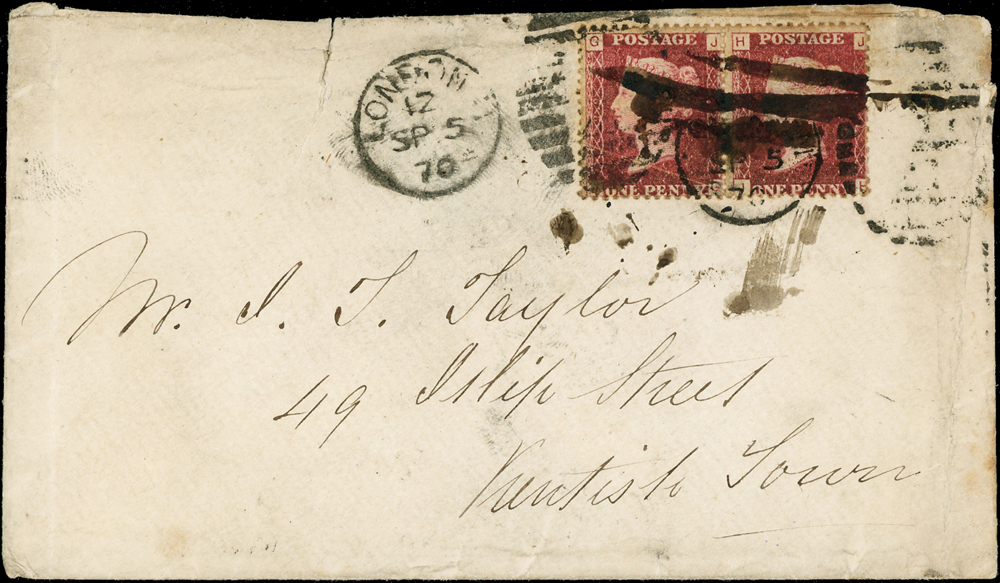 LONDON
12
SP 5
70
G POSTAGE J
H POSTAGE J
ONE PENNY
ONE PENNY
SP 5
70
Mr. J. T. Taylor
49 Islip Street
Kentish Town